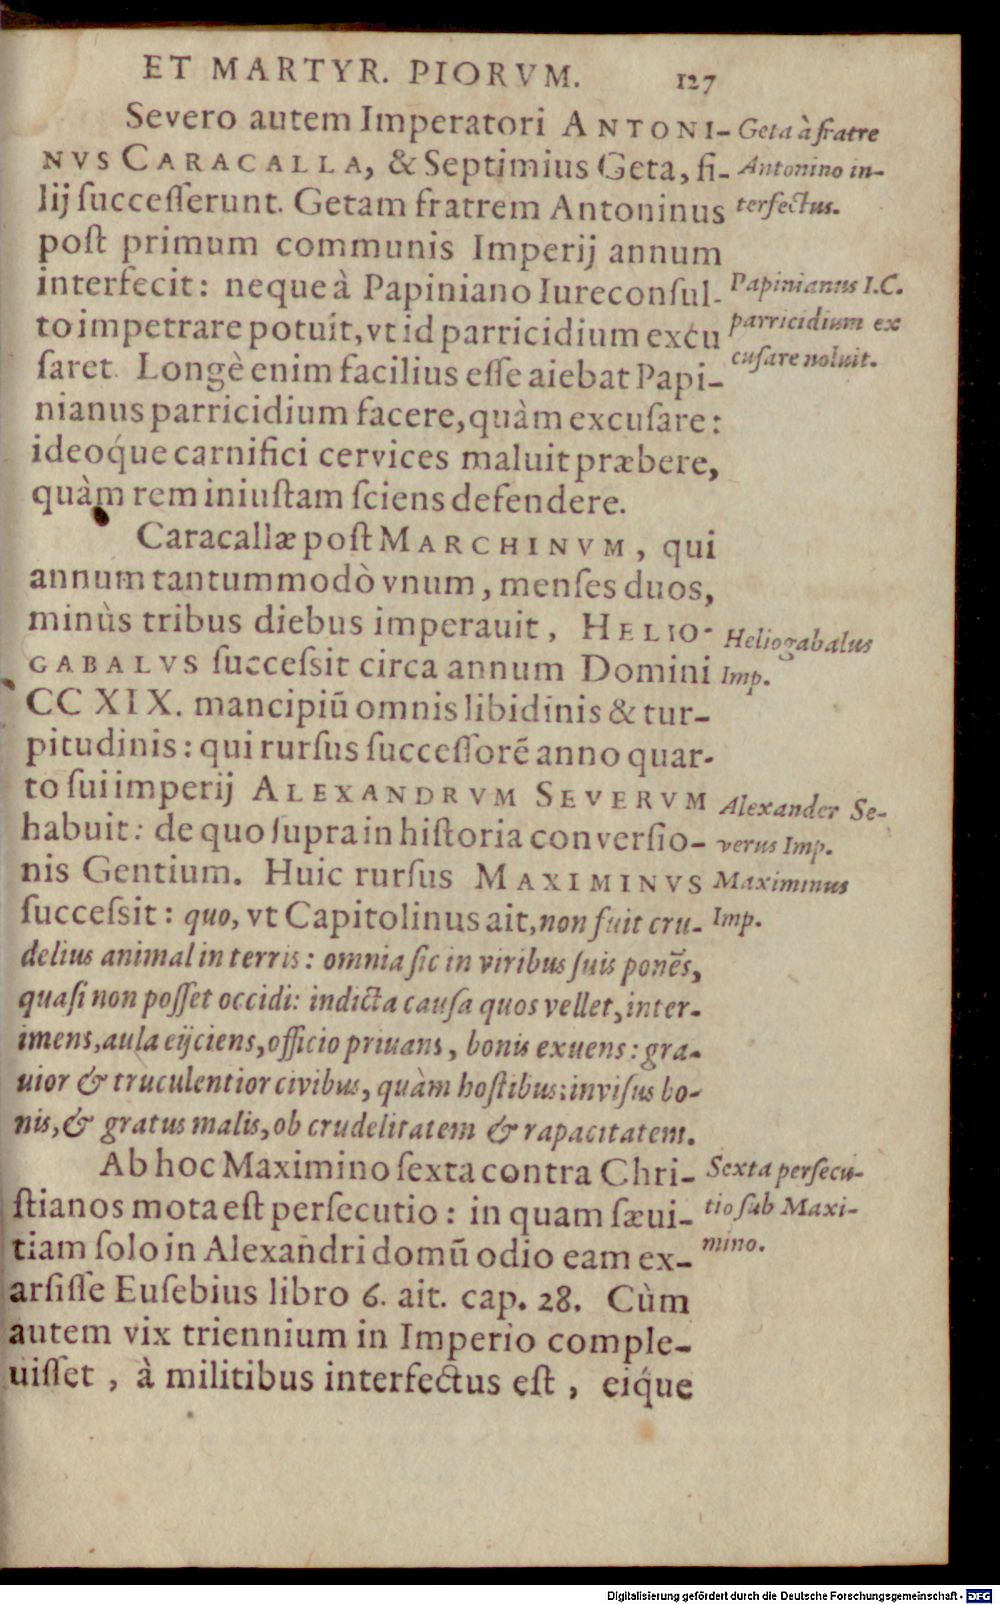 ET MARTYR. PIORVM. 127
Severo autem Imperatori ANTONI-
NVS CARACALLA, & Septimius Geta, fi-
lij ſucceſſerunt. Getam fratrem Antoninus
poſt primum communis Imperij annum
interfecit: neque à Papiniano Iureconſul-
to impetrare potuit, vt id parricidium excu
ſaret. Longè enim facilius eſſe aiebat Papi-
nianus parricidium facere, quàm excuſare:
ideoq́ue carnifici cervices maluit præbere,
quàm rem iniuſtam ſciens defendere.
Caracallæ poſt MARCHINVM, qui
annum tantummodò vnum, menſes duos,
minùs tribus diebus imperauit, HELIO-
GABALVS ſucceſsit circa annum Domini
CC XIX. mancipiũ omnis libidinis & tur-
pitudinis: qui rurſus ſucceſſorẽ anno quar-
to ſui imperij ALEXANDRVM SEVERVM
habuit: de quo ſupra in hiſtoria converſio-
nis Gentium. Huic rurſus MAXIMINVS
ſucceſsit: quo, vt Capitolinus ait, non fuit cru-
delius animal in terris: omnia ſic in viribus ſuis ponẽs,
quaſi non poſſet occidi: indicta cauſa quos vellet, inter-
imens, aula eijciens, officio priuans, bonis exuens: gra-
uior & truculentior civibus, quàm hoſtibus: inviſus bo-
nis, & gratus malis, ob crudelitatem & rapacitatem.
Ab hoc Maximino ſexta contra Chri-
ſtianos mota eſt perſecutio: in quam ſæui-
tiam ſolo in Alexandri domũ odio eam ex-
arſiſſe Euſebius libro 6. ait. cap. 28. Cùm
autem vix triennium in Imperio comple-
uiſſet, à militibus interfectus eſt, eiq́ue
Geta à fratre
Antonino in-
terfectus.
Papinianus I.C.
parricidium ex
cuſare noluit.
Heliogabalus
Imp.
Alexander Se-
verus Imp.
Maximinus
Imp.
Sexta perſecu-
tio ſub Maxi-
mino.
Digitalisierung gefördert durch die Deutsche Forschungsgemeinschaft - DFG